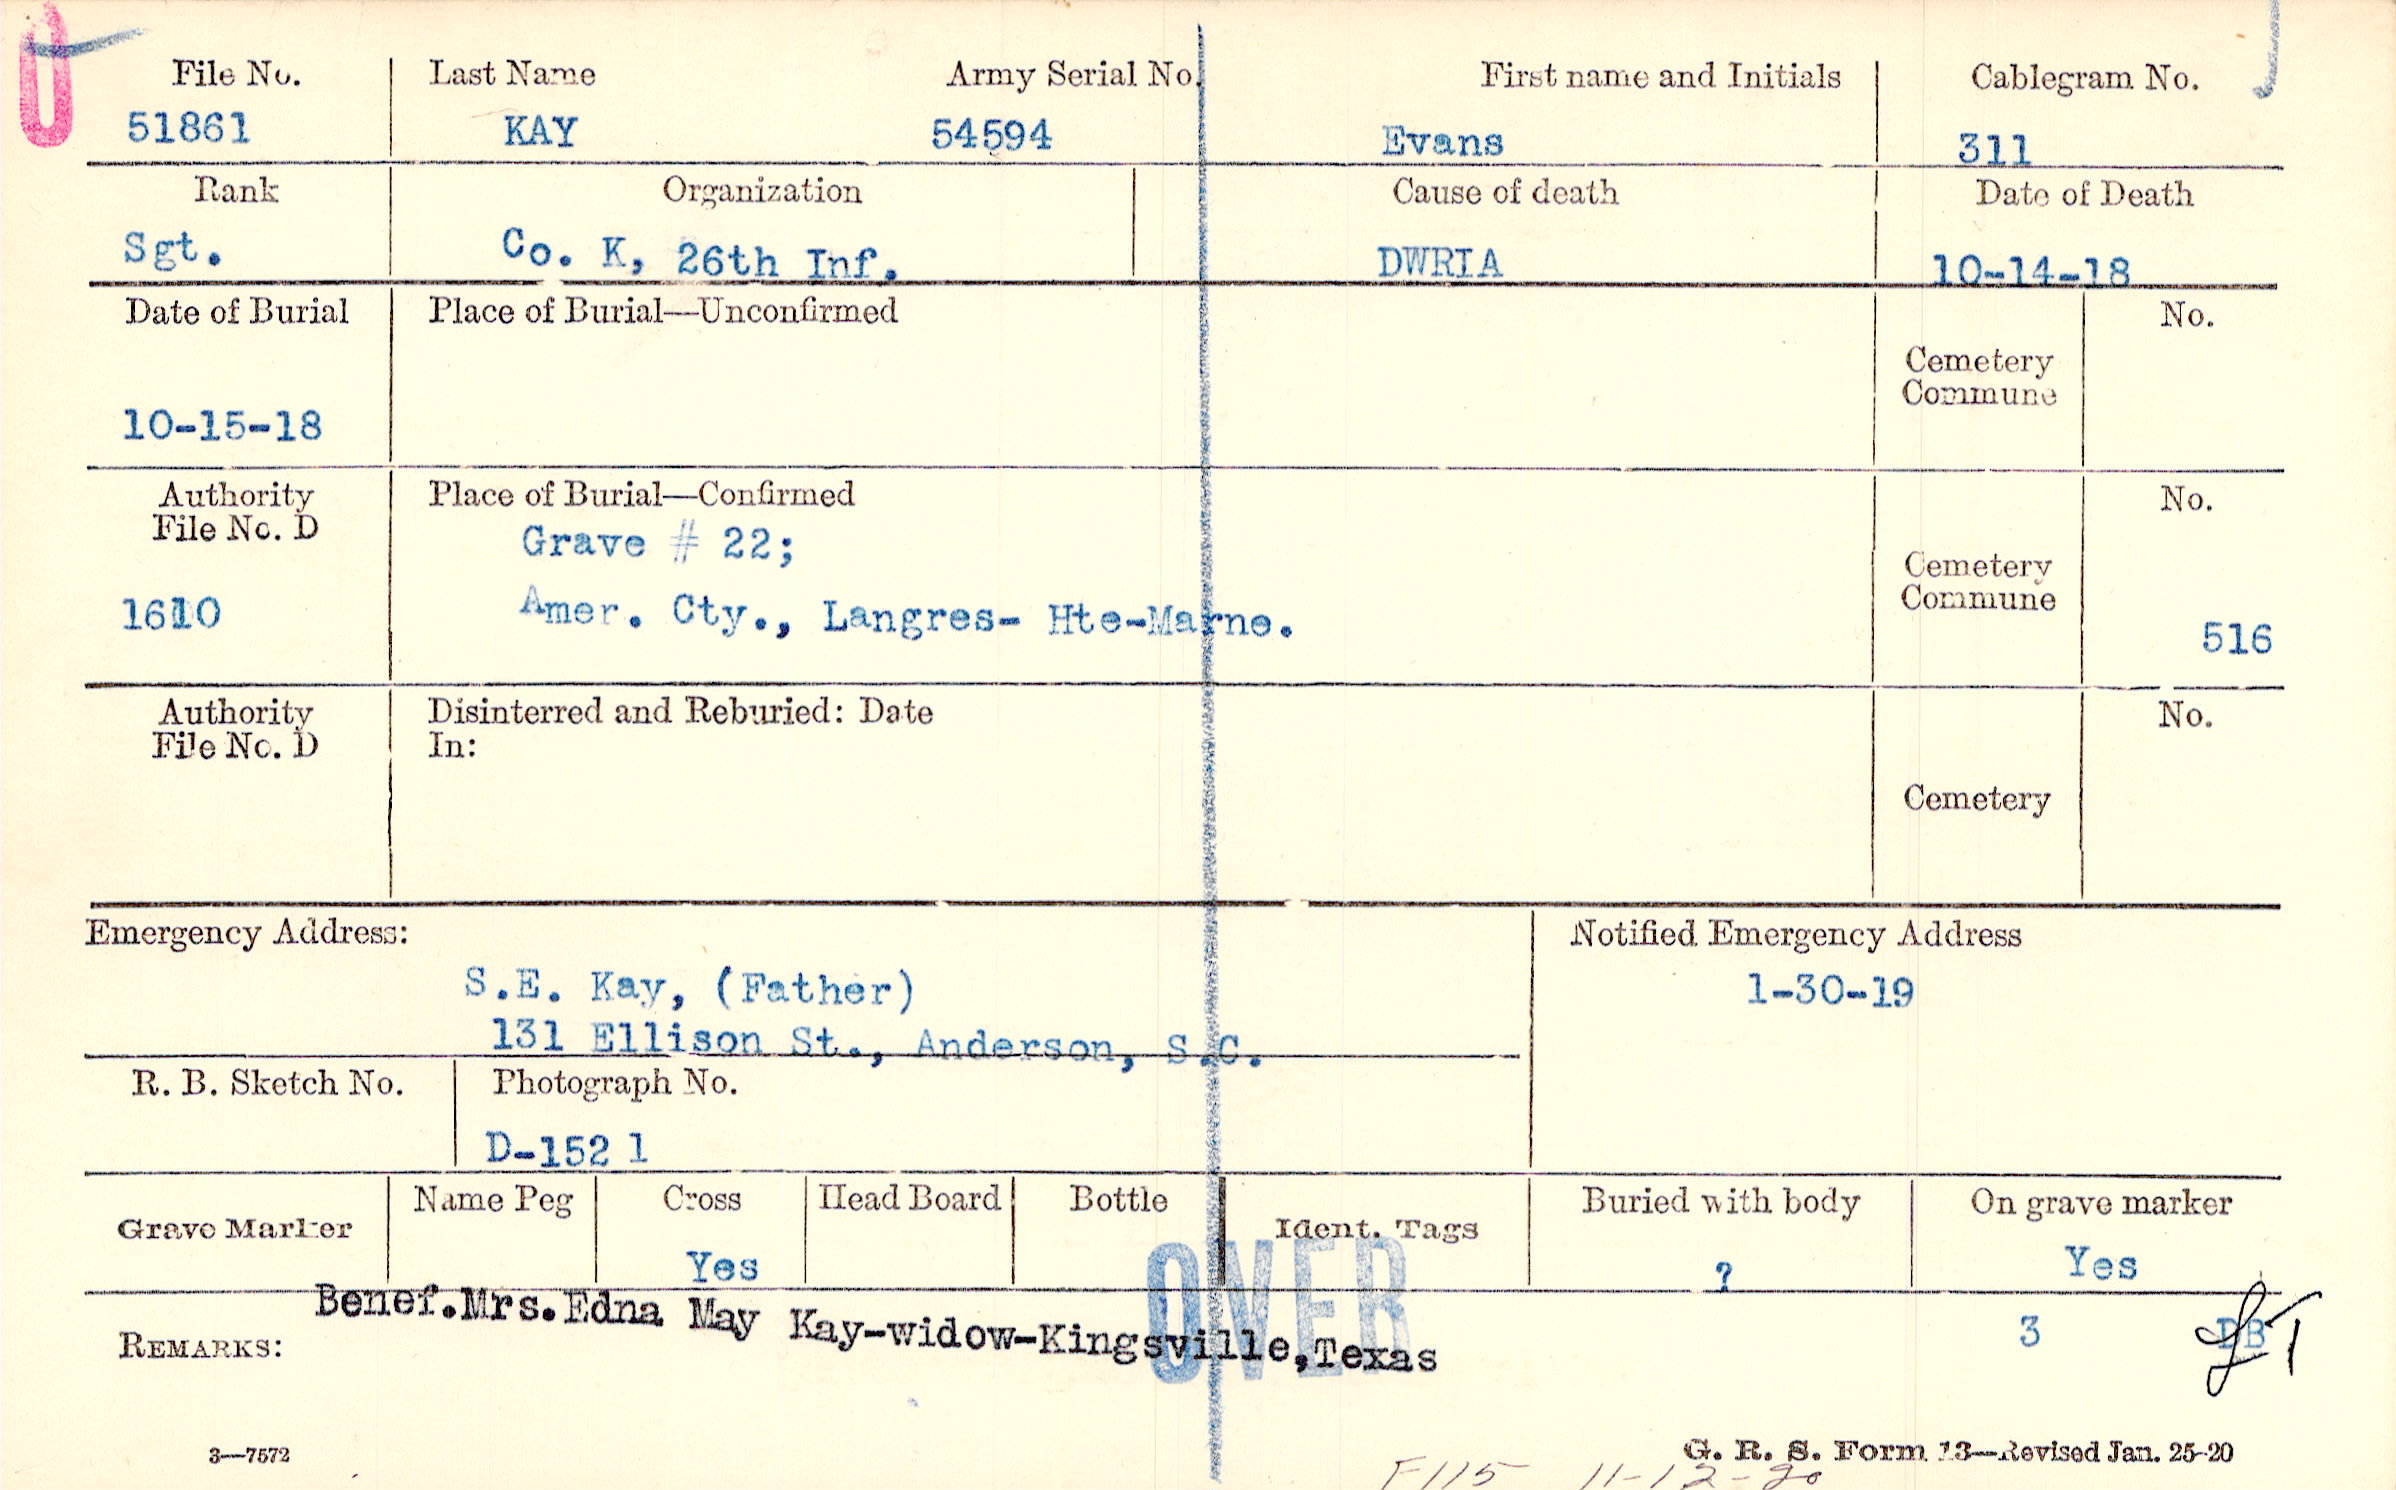 File No. Last Name Army Serial No. First name and Initials Cablegram No.
51861 KAY 54594 Evans 311
Rank Organization Cause of death Date of Death
Sgt. Co. K, 26th Inf. DWRIA 10-14-18
Date of Burial Place of Burial—Unconfirmed No.
Cemetery
Commune
10-15-18
Authority Place of Burial—Confirmed No.
File No. D
Grave # 22;
Cemetery
Commune
1610 Amer. Cty., Langres- Hte-Marne. 516
Authority Disinterred and Reburied: Date No.
File No. D In:
Cemetery
Emergency Address: Notified Emergency Address
S.E. Kay, (Father) 1-30-19
131 Ellison St., Anderson, S.C.
R. B. Sketch No. Photograph No.
D-152 1
Grave Marker Name Peg Cross Head Board Bottle Ident. Tags Buried with body On grave marker
Yes ? Yes
OVER
Benef.Mrs.Edna May Kay-widow-Kingsville,Texas
REMARKS: 3 DB
3—7572 G. R. S. Form 13—Revised Jan. 25-20
F115 11-12-20